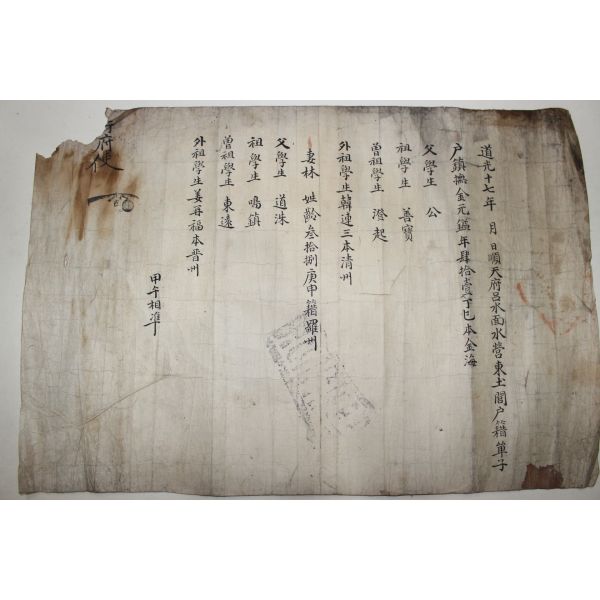 道光十七年 月 日順天府呂水面水營東土閣戶籍單子
戶鎮撫金元鑑年肆拾壹丁巳本金海
父學生 公
祖學生 善寶
曾祖學生 澄起
外祖學生韓連三本清州
妻林 姓齡叁拾捌庚申籍羅州
父學生 道洙
祖學生 鳴鎮
曾祖學生 東遠
外祖學生姜再福本晋州
甲午相准
府使